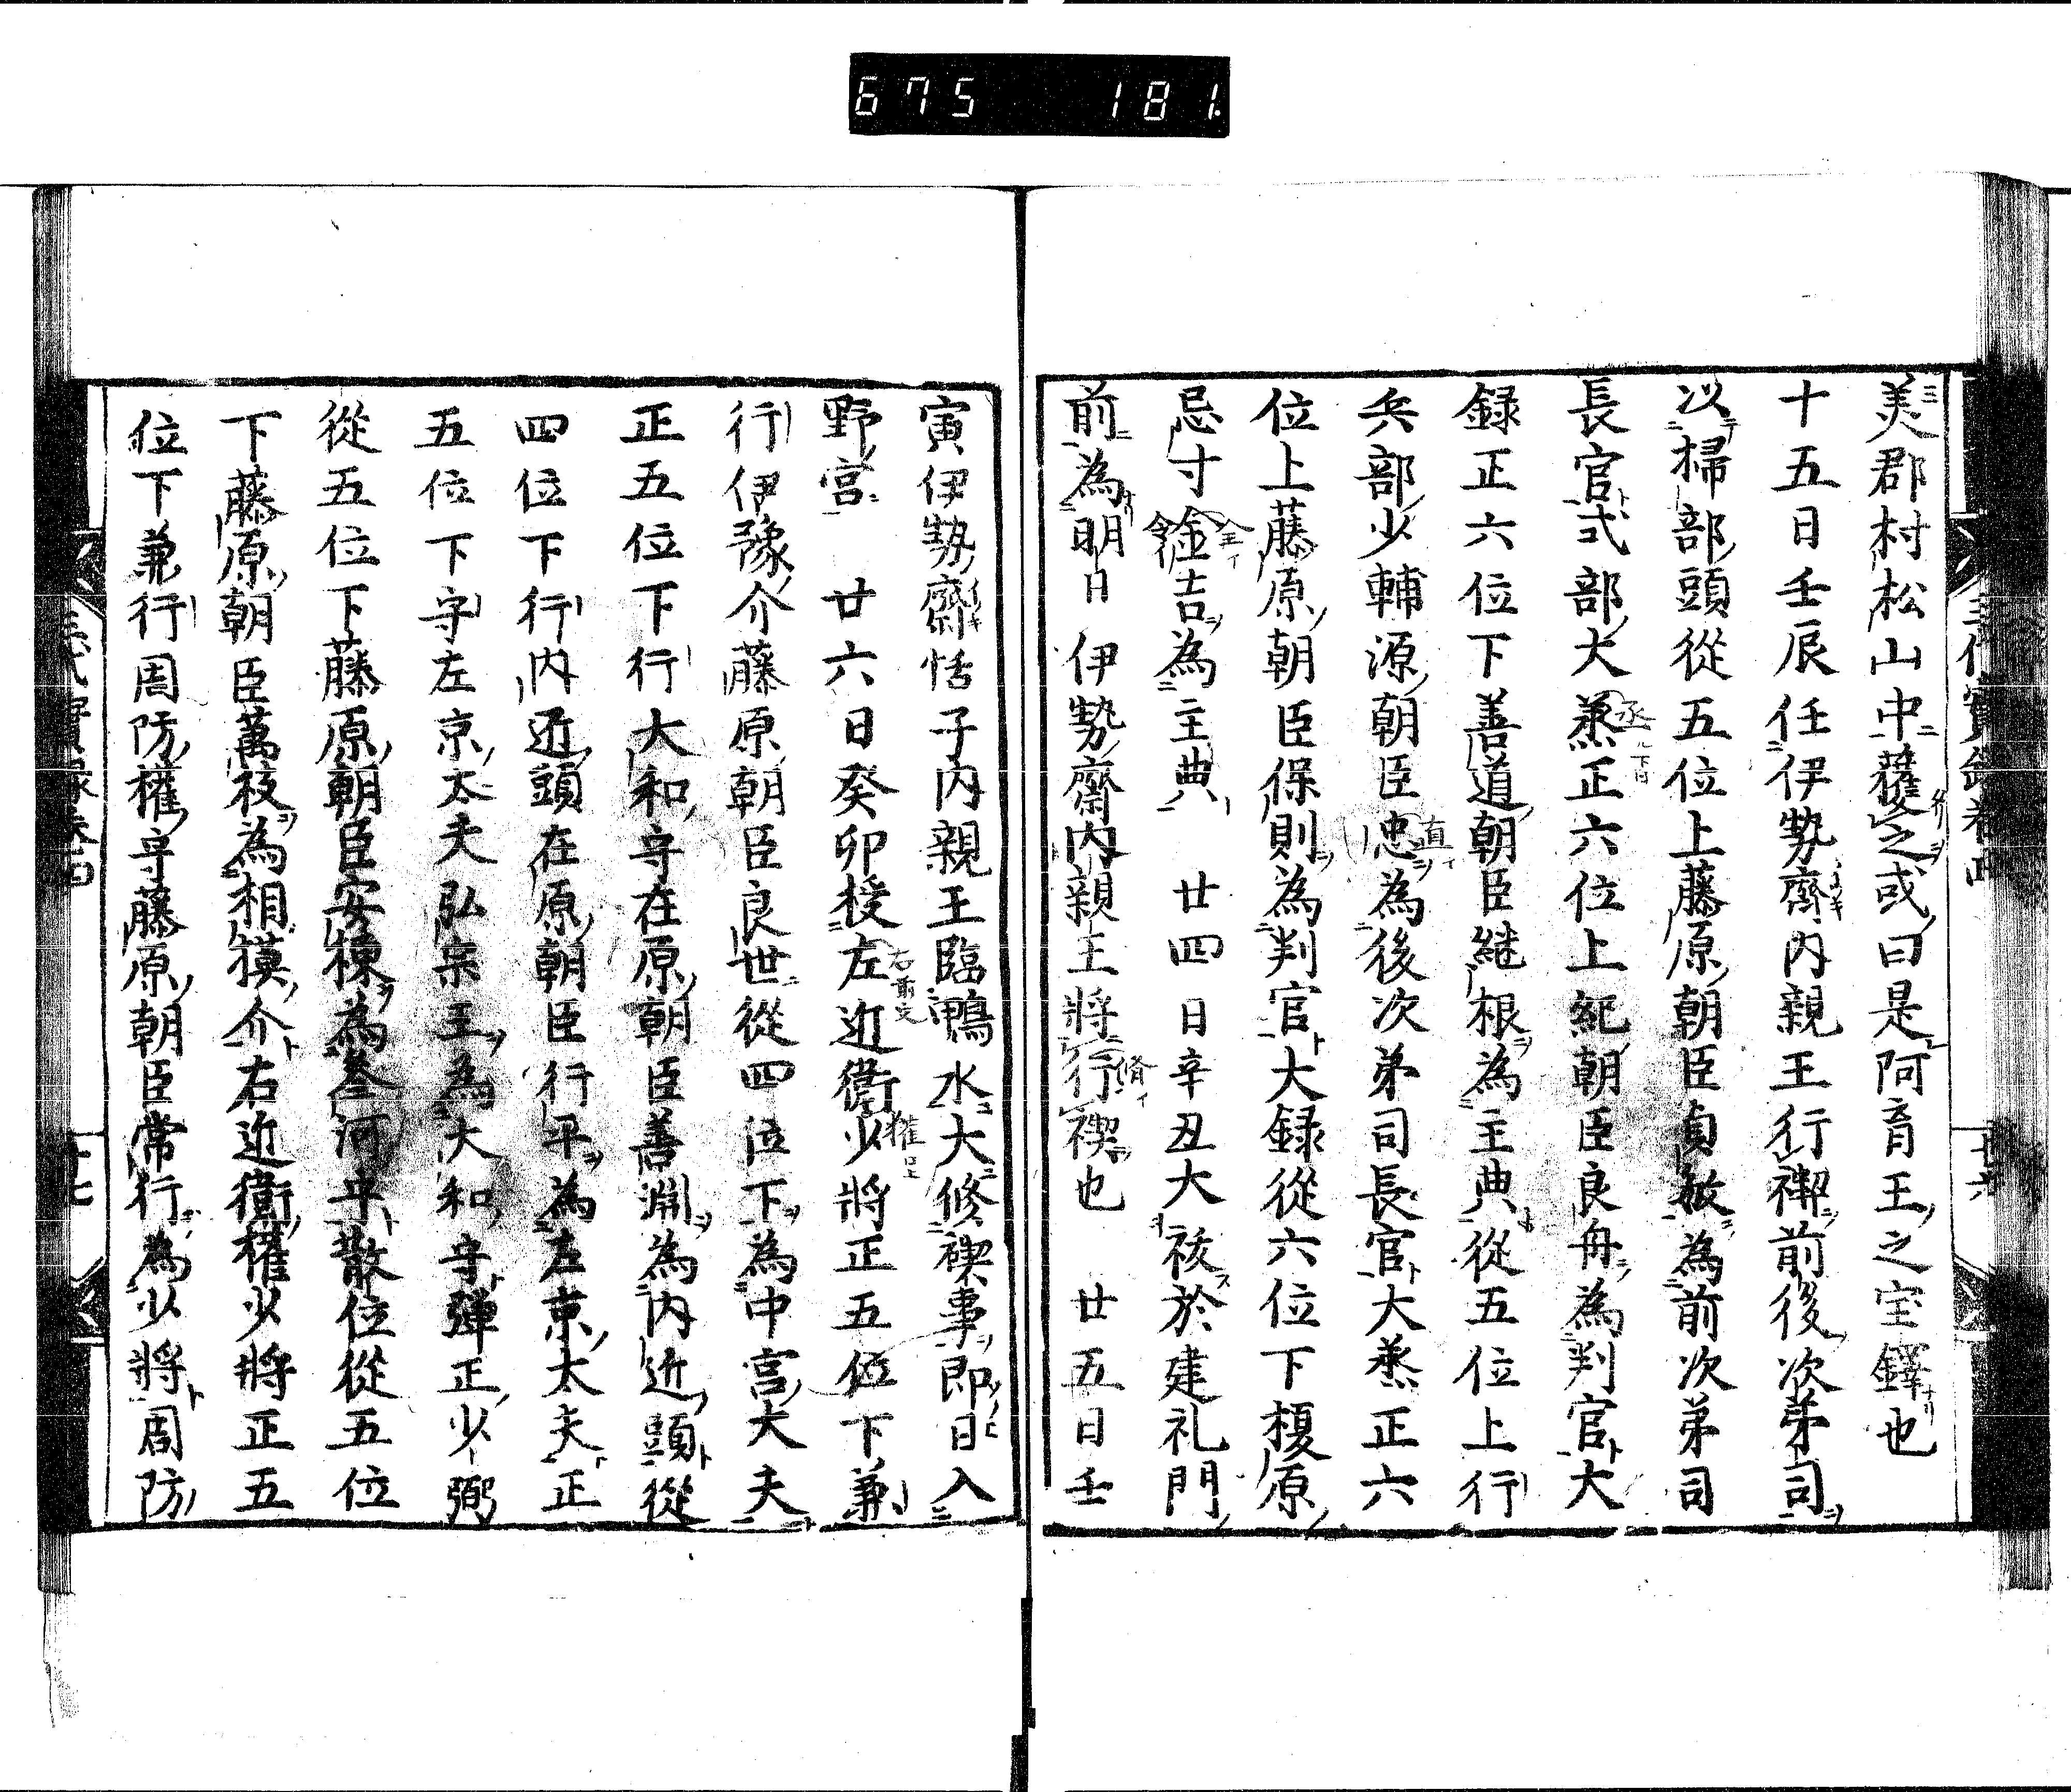 675 181.
美郡村松山中獲之或曰是阿育王之宝鐸也
十五日壬辰任伊勢齋内親王行禊前後次第司
以掃部頭從五位上藤原朝臣貞敏為前次第司
長官式部大蒸正六位上紀朝臣良舟為判官大
録正六位下善道朝臣継根為主典從五位上行
兵部少輔源朝臣忠為後次第司長官大蒸正六
位上藤原朝臣保則為判官大録從六位下榎原
忌寸䥆吉為主典 廿四日辛丑大祓於建礼門
前為明日伊勢齋内親王將行禊也 廿五日壬
寅伊勢齋恬子内親王臨鴨水大修禊事即日入
野宮 廿六日癸卯授左近衛少將正五位下兼
行伊豫介藤原朝臣良世從四位下為中宮大夫
正五位下行大和守在原朝臣善淵為内近頭從
四位下行内近頭在原朝臣行平為左京太夫正
五位下守左京太夫弘宗王為大和守弾正少弼
從五位下藤原朝臣安棟為叁河守散位從五位
下藤原朝臣萬枝為相摸介右近衛權少將正五
位下兼行周防權守藤原朝臣常行為少將周防